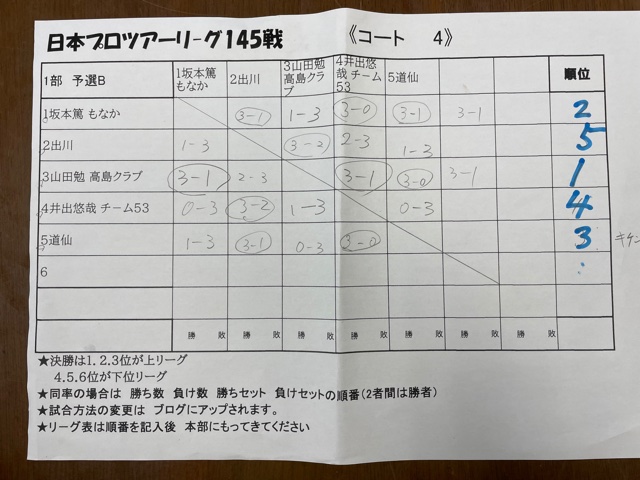 日本プロツアーリーグ145戦 《コート 4》
1部 予選B 1坂本篤 もなか 2出川 3山田勉 高島クラブ 4井出悠哉 チーム53 5道仙 順位
1坂本篤 もなか 3-1 1-3 3-0 3-1 3-1 2
2出川 1-3 3-2 2-3 1-3 5
3山田勉 高島クラブ 3-1 2-3 3-1 3-0 3-1 1
4井出悠哉 チーム53 0-3 3-2 1-3 0-3 4
5道仙 1-3 3-1 0-3 3-0 3 キケン
6
勝 敗 勝 敗 勝 敗 勝 敗 勝 敗 勝 敗 勝 敗
★決勝は1.2.3位が上リーグ
4.5.6位が下位リーグ
★同率の場合は 勝ち数 負け数 勝ちセット 負けセットの順番(2者間は勝者)
★試合方法の変更は ブログにアップされます。
★リーグ表は順番を記入後 本部にもってきてください